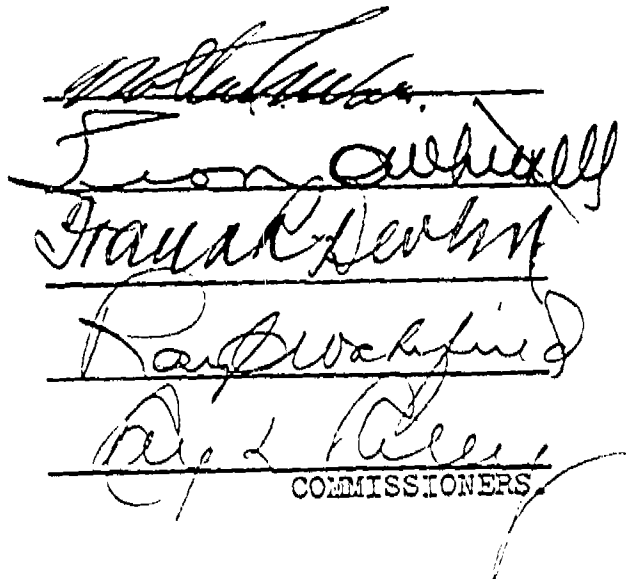 Leon O Whitsell
Frank R Devlin
Ray C Wakefield
Ray L Riley
COMMISSIONERS.